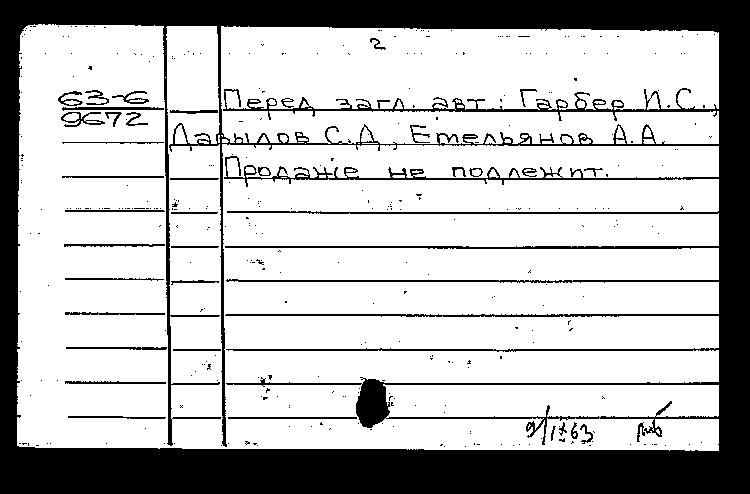 2
63-6 Перед загл. авт.: Гарбер И.С.,
9672
Давыдов С.Д., Емельянов А.А.
Продаже не подлежит.
9/IX 63